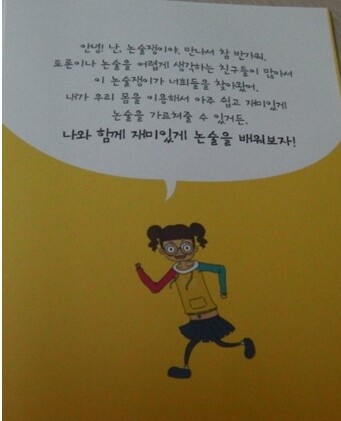 안녕! 난, 논술쟁이야. 만나서 참 반가워.
토론이나 논술을 어렵게 생각하는 친구들이 많아서
이 논술쟁이가 너희들을 찾아왔어.
내가 우리 몸을 이용해서 아주 쉽고 재미있게
논술을 가르쳐줄 수 있거든.
나와 함께 재미있게 논술을 배워보자!